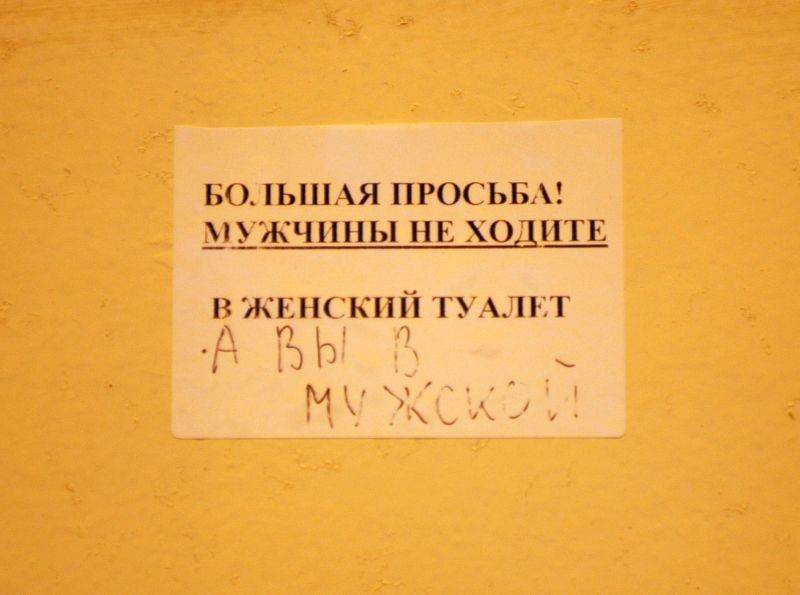 БОЛЬШАЯ ПРОСЬБА!
МУЖЧИНЫ НЕ ХОДИТЕ
В ЖЕНСКИЙ ТУАЛЕТ
А ВЫ В
МУЖСКОЙ!